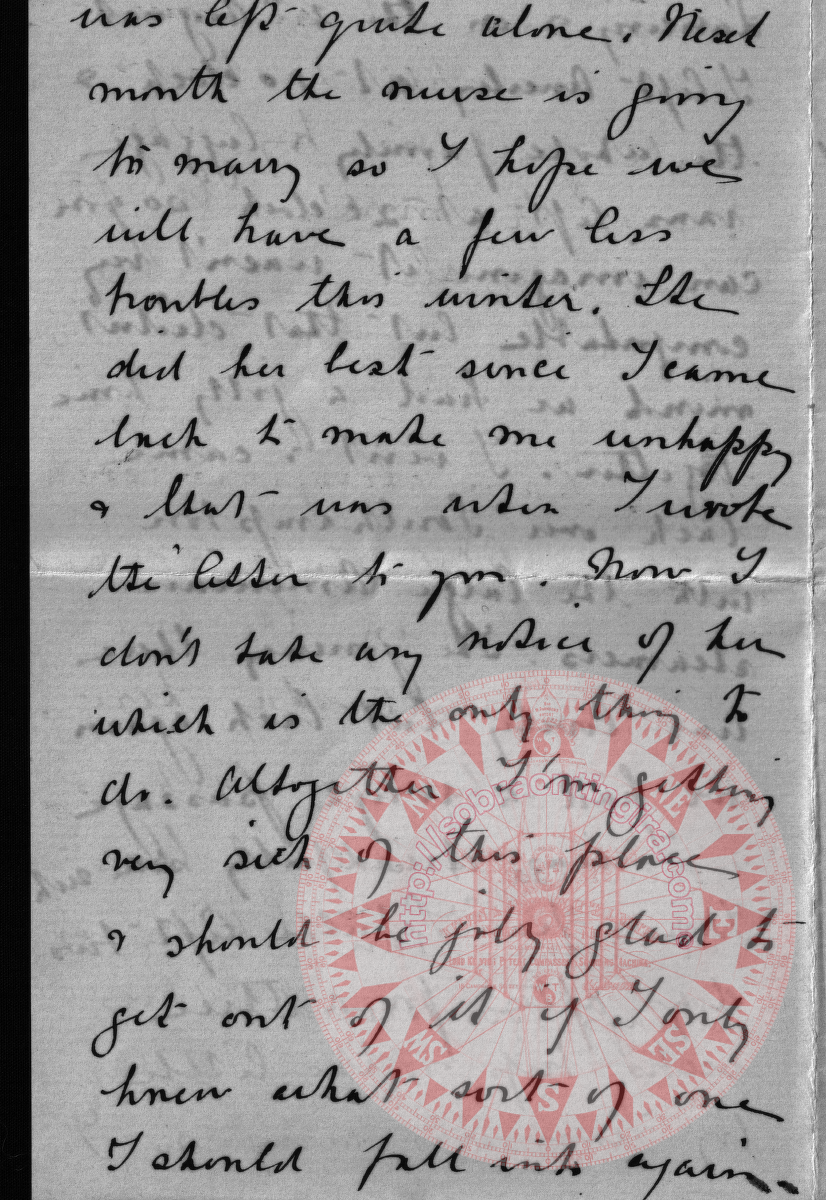 was left quite alone. Next
month the nurse is going
to marry so I hope we
will have a few less
troubles this winter. She
did her best since I came
back to make me unhappy
& that was when I wrote
the letter to you. Now I
don't take any notice of her
which is the only thing to
do. Altogether I'm getting
very sick of this place
& should be jolly glad to
get out of it if I only
knew what sort of one
I should fall into again -
http://sobraontingra.com
NE
E
SE
S
SW
W
NW